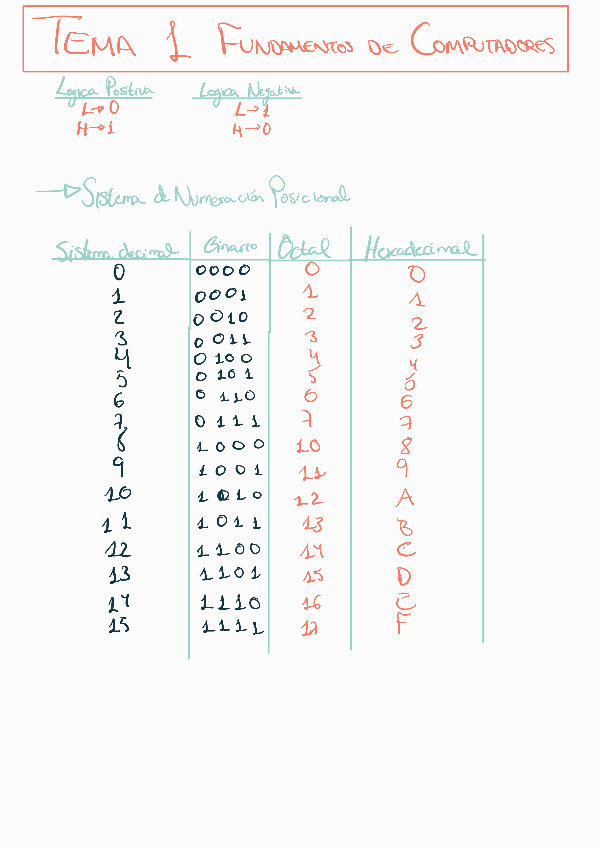 TEMA 1 FUNDAMENTOS DE COMPUTADORES
Logica Positiva Logica Negativa
L→0 L→1
H→1 H→0
→ Sistema de Numeración Posicional
Sistema decimal Binario Octal Hexadecimal
0 0000 0 0
1 0001 1 1
2 0010 2 2
3 0011 3 3
4 0100 4 4
5 0101 5 5
6 0110 6 6
7 0111 7 7
8 1000 10 8
9 1001 11 9
10 1010 12 A
11 1011 13 B
12 1100 14 C
13 1101 15 D
14 1110 16 E
15 1111 17 F